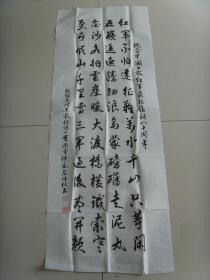 纪念中国工农红军长征胜利八十周年
红军不怕远征难万水千山只等闲
五岭逶迤腾细浪乌蒙磅礴走泥丸
金沙水拍云崖暖大渡桥横铁索寒
更喜岷山千里雪三军过后尽开颜